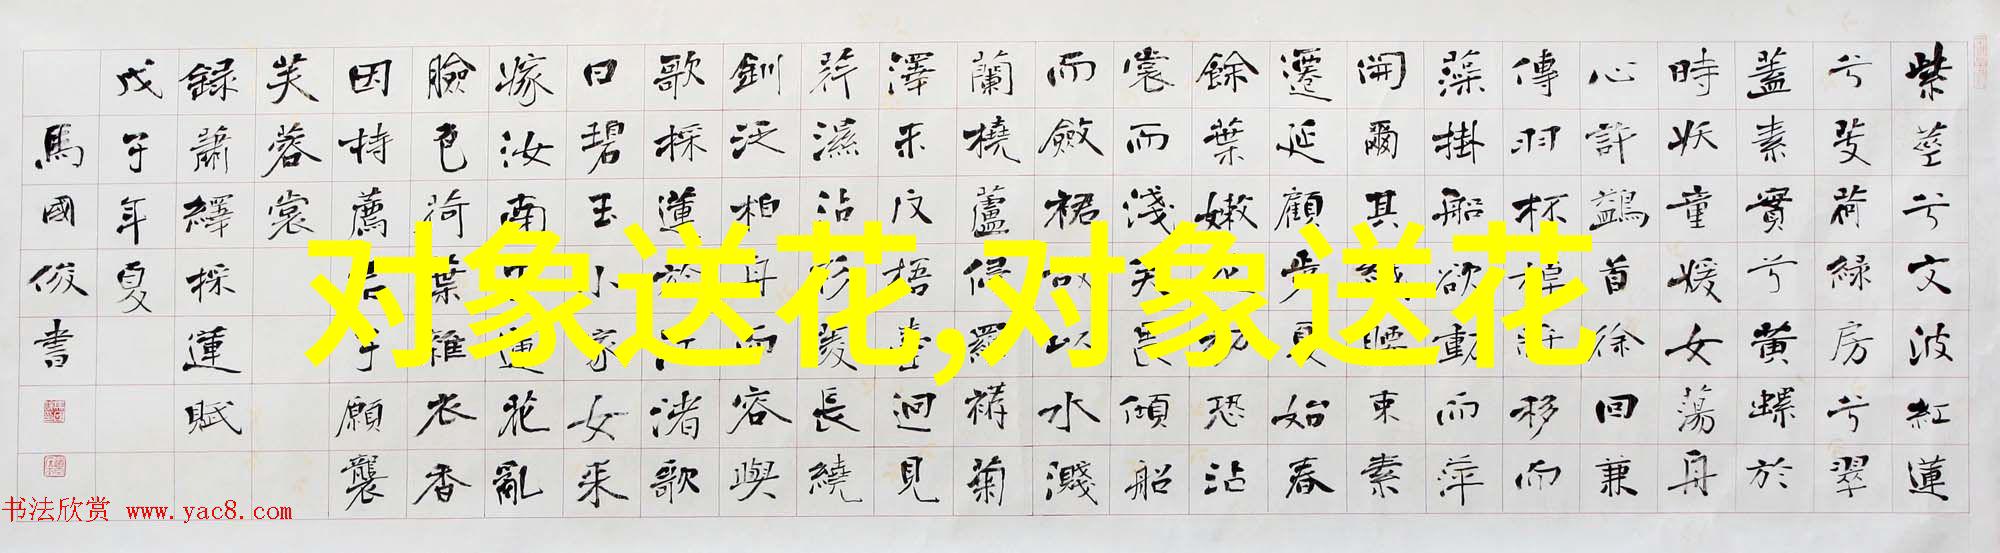 紫莖兮文波紅蓮
兮芰荷綠房兮翠
蓋素實兮黃螺於
時妖童媛女蕩舟
心許鷁首徐回兼
傳羽杯棹將移而
藻掛船欲動而萍
開爾其纖腰束素
遷延顧步夏始春
餘葉嫩花初恐沾
裳而淺笑畏傾船
而斂裾故以水濺
蘭橈蘆侵羅菊
澤未反梧臺迥見
荇濕沾衫菱長繞
釧泛柏舟而容與
歌採蓮於江渚歌
曰碧玉小家女來
嫁汝南王蓮花亂
臉色荷葉雜衣香
因持薦君子願襲
芙蓉裳
錄蕭繹採蓮賦
戊子年夏
馬國俊書
对象送花,对象送花
书法欣赏 www.yac8.com